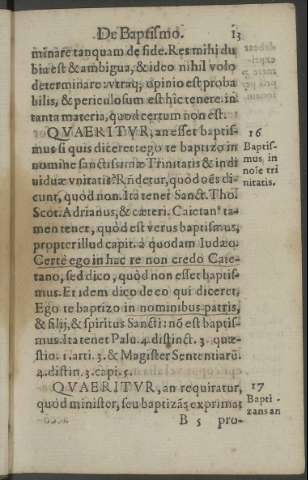 De Baptismo. 13
minare tanquam de fide. Res mihi du
bia est & ambigua, & ideo nihil volo
determinare: vtraq; opinio est proba
bilis, & periculosum est hîc tenere in
tanta materia, quod certum non est.
QVAERITVR, an esset baptis-
mus si quis diceret: ego te baptizo in
nomine sanctissimæ Trinitatis & indi
uiduæ vnitatis? Rñdetur, quòd oẽs di-
cunt, quòd non. Ita tenet Sanct. Tho.
Scot. Adrianus, & cæteri. Caietan⁹ ta-
men tenet, quòd est verus baptismus,
propter illud capit. à quodam Iudæo.
Certè ego in hac re non credo Caie-
tano, sed dico, quòd non esset baptis-
mus. Et idem dico de eo qui diceret,
Ego te baptizo in nominibus patris,
& filij, & spiritus Sancti: nõ est baptis-
mus. ita tenet Palu. 4. distinct. 3. quæ-
stio. 1. arti. 3. & Magister Sententiarũ.
4. distin. 3. capi. 5.
QVAERITVR, an requiratur,
quòd minister, seu baptizãs exprimat
B 5 pro-
16
Baptis-
mus, in
noĩe tri
nitatis.
17
Bapti-
zans an